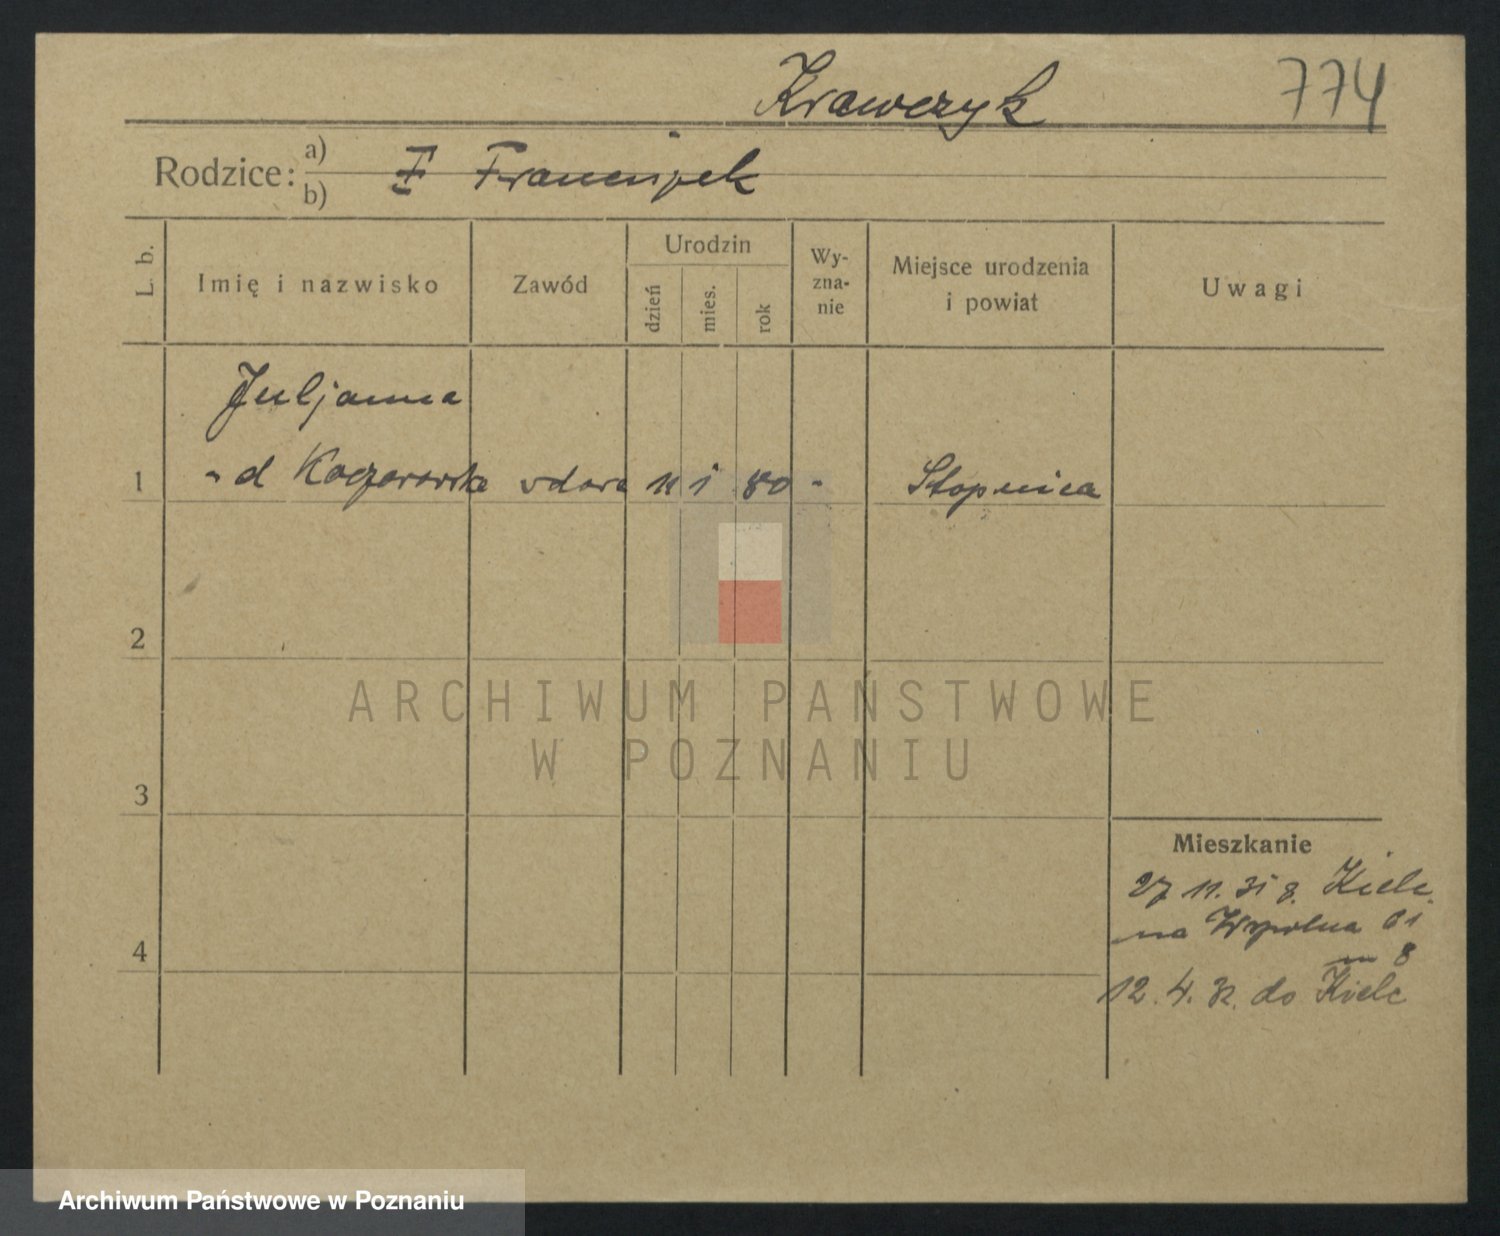 Krawczyk 774
Rodzice: a) b) F Franciszek
L. b. Imię i nazwisko Zawód Urodzin dzień mies. rok Wyznanie Miejsce urodzenia i powiat Uwagi
Juljanna
1 - d Kaczorowska wdowa 11 1 80 - Stopnica
2
ARCHIWUM PAŃSTWOWE
W POZNANIU
3
Mieszkanie
27 11. 31 z Kielc
na Wspólna 61
4 m 8
12. 4. 32. do Kielc
Archiwum Państwowe w Poznaniu